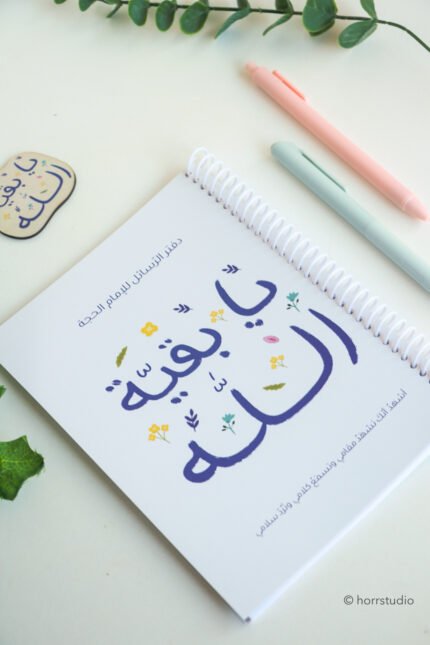 دفتر الرسائل للإمام الحجة
يا بقيّة
اللّه
أشهدُ أنّك تشهدُ مقامي وتسمعُ كلامي وتَرُدّ سلامي
يا بقية
اللّه
© horrstudio